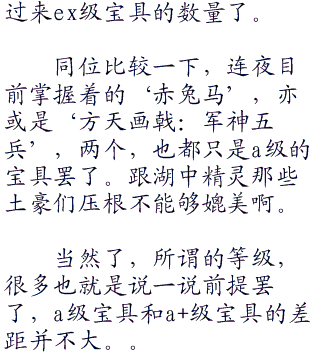 过来ex级宝具的数量了。
同位比较一下，连夜目
前掌握着的‘赤兔马’，亦
或是‘方天画戟：军神五
兵’，两个，也都只是a级的
宝具罢了。跟湖中精灵那些
土豪们压根不能够媲美啊。
当然了，所谓的等级，
很多也就是说一说前提罢
了，a级宝具和a+级宝具的差
距并不大。。